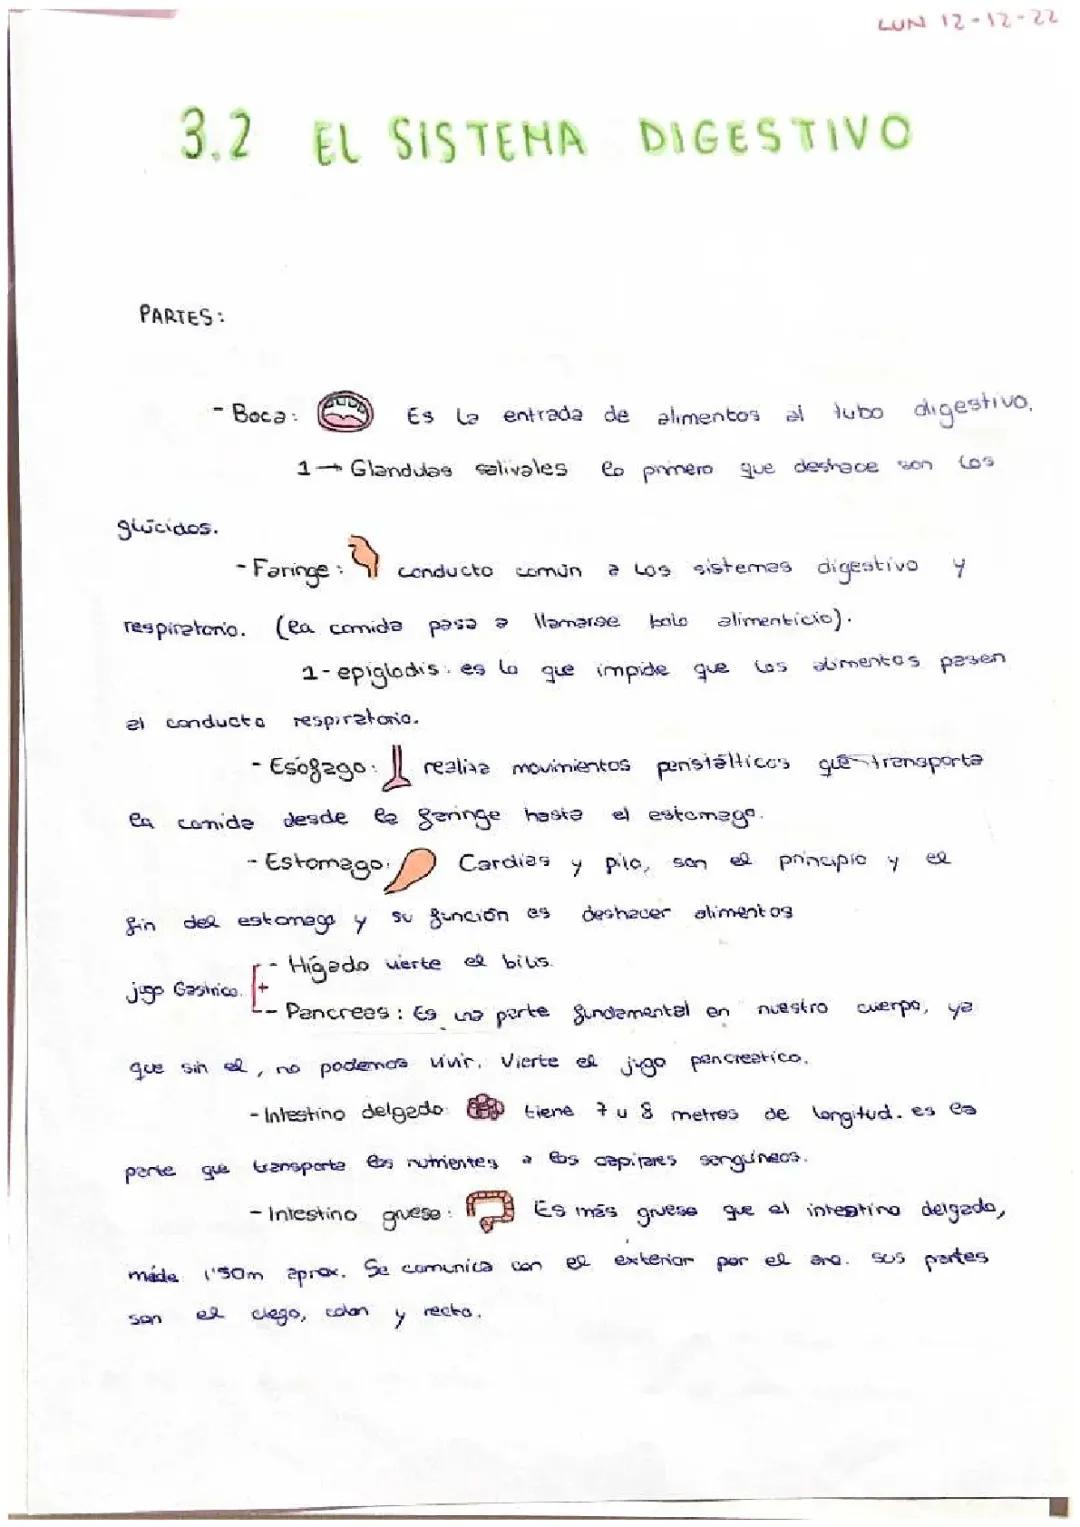 LUN 12-12-22
3.2 EL SISTEMA DIGESTIVO
PARTES:
- Boca: Es la entrada de alimentos al tubo digestivo.
1→ Glandulas salivales lo primero que deshace son los
glúcidos.
- Faringe: conducto común a los sistemas digestivo y
respiratorio. (la comida pasa a llamarse bolo alimenticio).
1- epiglodis: es lo que impide que los alimentos pasen
al conducto respiratorio.
- Esófago: realiza movimientos peristálticos que transporta
la comida desde la faringe hasta el estomago.
- Estomago: Cardias y pilo, son el principio y el
fin del estomago y su función es deshacer alimentos
- Hígado vierte el bilis.
jugo Gastrico. +
- Pancreas: Es una parte fundamental en nuestro cuerpo, ya
que sin el, no podemos vivir. Vierte el jugo pancreatico.
- Intestino delgado: tiene 7 u 8 metros de longitud. es la
parte que transporta los nutrientes a los capilares sanguineos.
- Intestino grueso: Es más grueso que el intestino delgado,
mide 1'50m aprox. Se comunica con el exterior por el ano. sus partes
son el ciego, colon y recto.